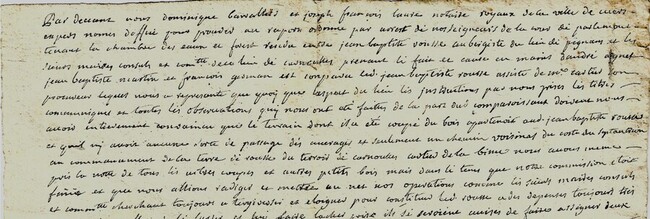 Par devant nous dominique et joseph françois laure notaire royaux de la ville de cuers
experts nommés d'office pour proceder au raport ordonné par arrest de nosseigneurs de la cour de parlement
tenant la chambre des eaux et forest rendu entre jean baptiste rousse aubergiste du lieu de pignans et les
sieurs maires consuls et com.té de ce lieu de carnoulles prenant le fait et cause en mains d'andré aymet
jean baptiste martin et francois gedman est comparu led. jean baptiste rousse assisté de m.e son
procureur lequel nous a representé que quoy que l'aspect du lieu les instructions par nous prises les titres
communiqués et toutes les observations qui nous ont été faittes de la part des comparoissant doivent nous
avoir entierement convaincu que le terrain dont il a été coupé du bois apartenoit aud. jean baptiste rousse
et quil ny avoit aucune sorte de passage des averages et seulement un chemin voisinal du costé du septentrion
au commencement de la terre de rousse du terroir de carnoules de la bime nous avons meme
pris la notte de tous les arbres coupés et autres petits bois mais dans le tems que notre commission etoit
finie et que nous allions rediger et mettre au net nos operations comme les sieurs maires consuls
et comm.té cherchant toujours a tergiverser et eloigner pour constituer led. rousse a des depenses toujours tres
ils se seroient avisés de faire assigner deux